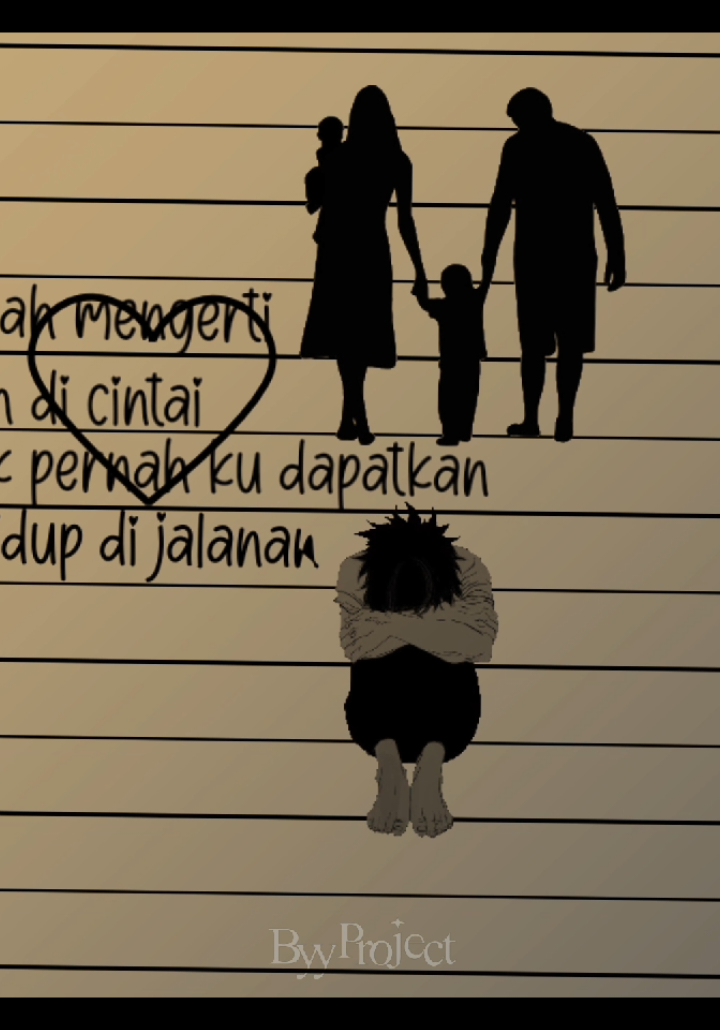 ah mengerti
n di cintai
k pernah ku dapatkan
dup di jalanan
Byy Project